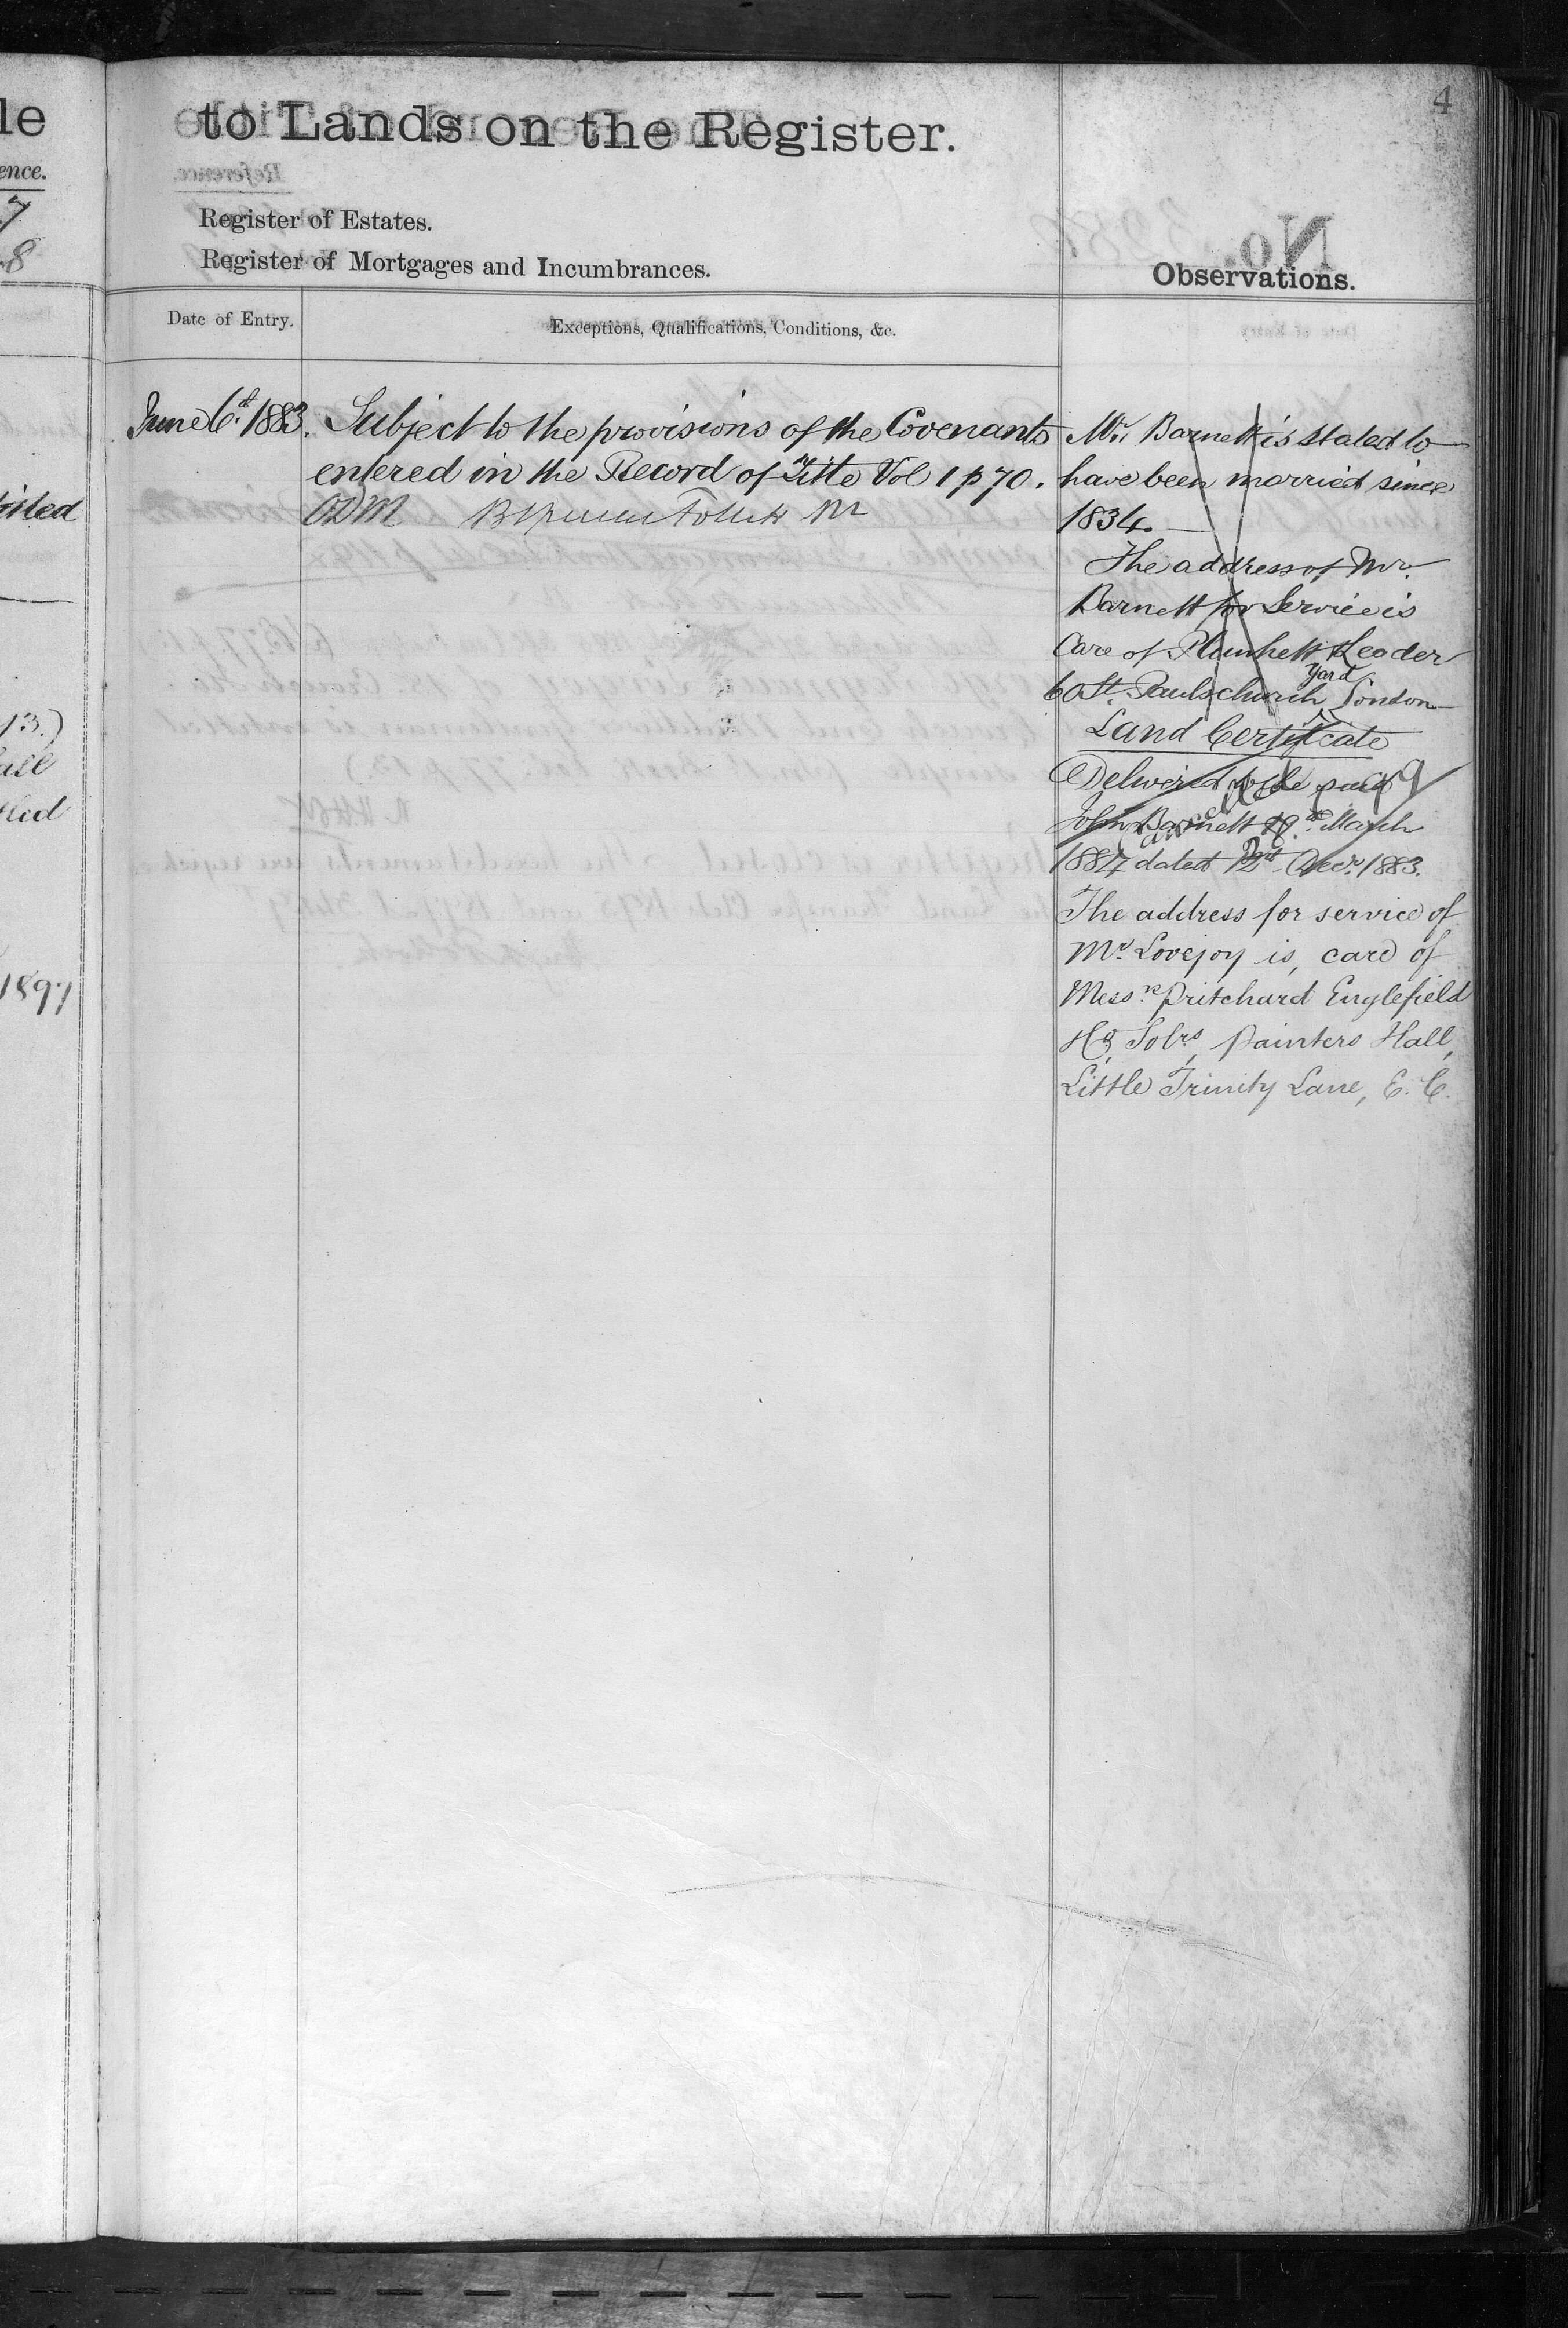 4
to Lands on the Register.
Register of Estates.
Register of Mortgages and Incumbrances.
Observations.
Date of Entry.
Exceptions, Qualifications, Conditions, &c.
June 6th 1883.
Subject to the provisions of the Covenants
entered in the Record of Title Vol 1 p 70.
Mr. Barnett is stated to
have been married since
1834.
The address of Mr.
Barnett for Service is
Care of Plunkett & Leader
60 St. Pauls church yard London
Land Certificate
Delivered to
John Barnett 19th March
1884 dated Decr. 1883.
Cancelled
The address for service of
Mr. Lovejoy is, care of
Messrs Pritchard Englefield
& Co, Solrs, Painters Hall,
Little Trinity Lane, E.C.
le
ence.
7
8
13.)
1897